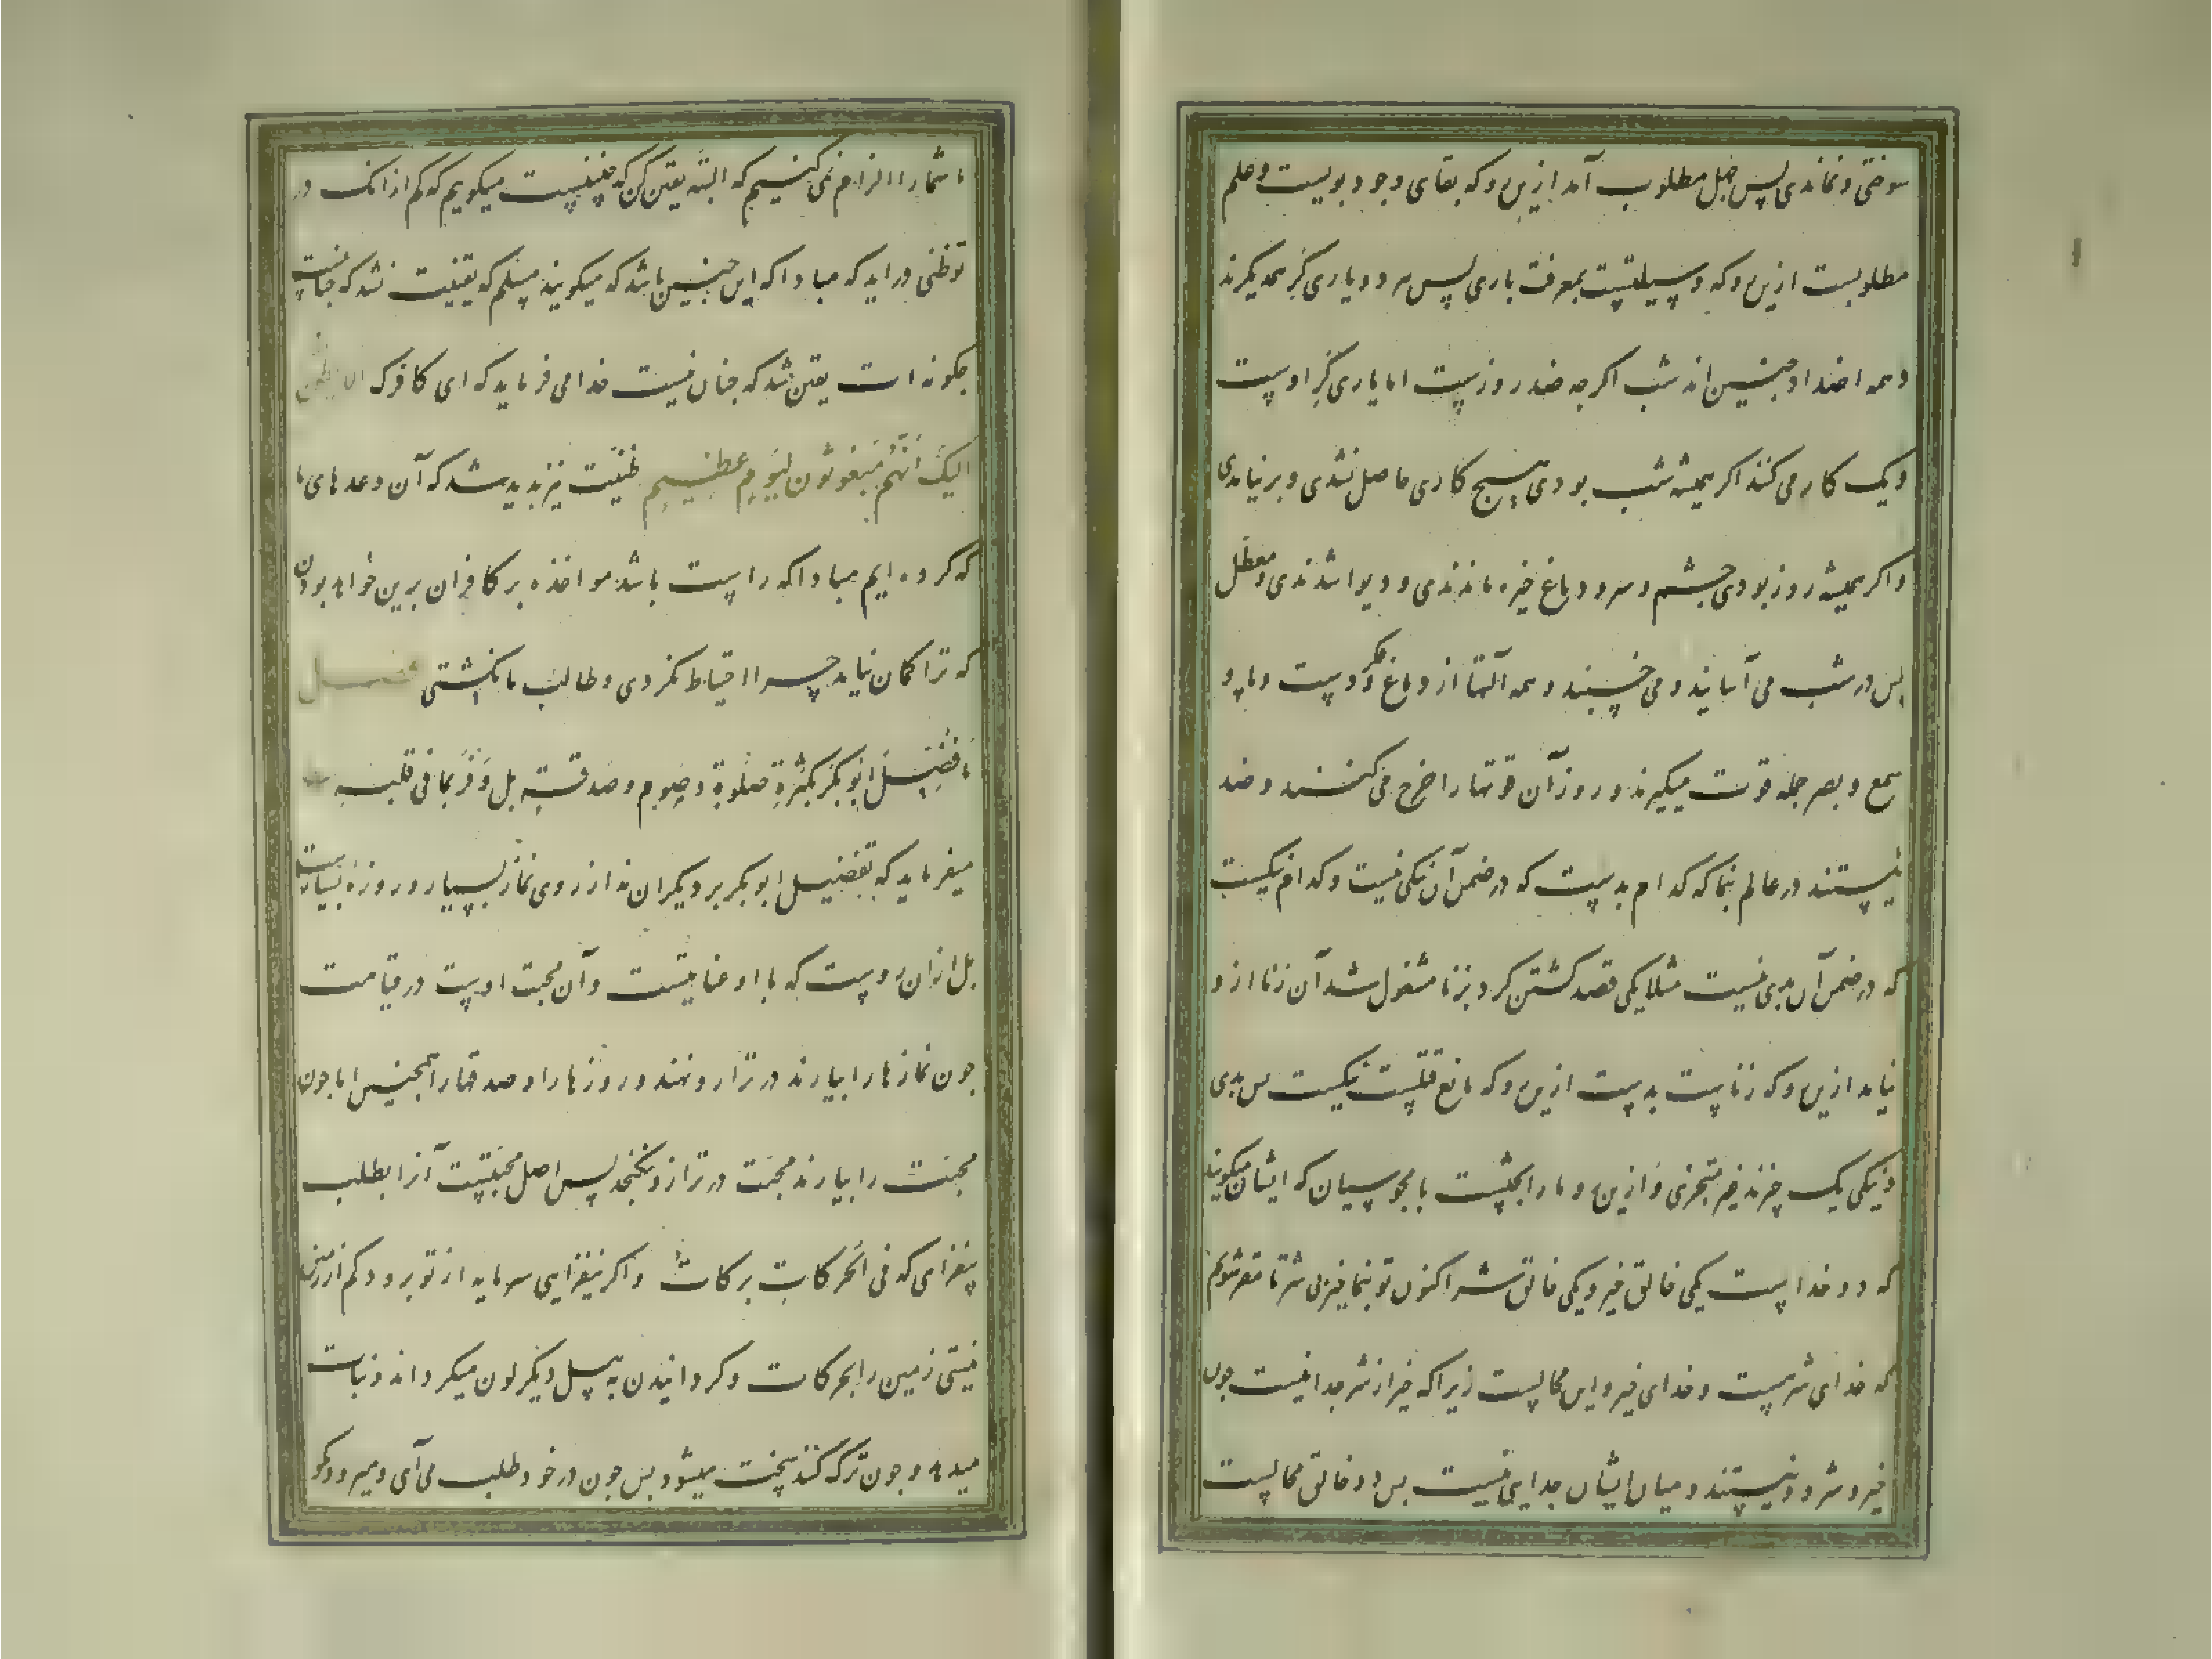 سوختی و نماندی پس جهل مطلوب آمد ازین رو که بقای وجود بویست و علم
مطلوبست ازین رو که وسیلتست بمعرفت باری پس هر دو یاری گر همدیگرند
و همه اضداد چنین اند شب اگر چه ضد روزست اما یاری گر اوست
و یک کار می کنند اکر همیشه شب بودی هیچ کاری حاصل نشدی و برنیامدی
و اکر همیشه روز بودی چشم و سر و دماغ خیره ماندندی و دیوا شدندی و معطل
پس در شب می آسایند و می خسبند و همه آلتها از دماغ و فکر و دست و پا و
سمع و بصر جمله قوت میگیرند و روز آن قوتها را خرج می کنند و ضد
نیستند در عالم بنما که کدام بدست که در ضمن آن نیکی نیست و کدام نیکیست
که در ضمن آن بدی نیست مثلا یکی قصد کشتن کرد بزنا مشغول شد آن زنا ازو
نیامد ازین رو که زناست بدست ازین رو که مانع قتلست نیکیست پس بدی
و نیکی یک چیزند غیر متجزی و ازین رو ما را بحثست با مجوسیان که ایشان میگویند
که دو خداست یکی خالق خیر و یکی خالق شر اکنون تو بنما خیر بی شر تا مقر شویم
که خدای شر هست و خدای خیر و این محالست زیرا که خیر از شر جدا نیست چون
خیر و شر دو نیستند و میان ایشان جدایی نیست پس دو خالق محالست
ما شما را الزام نمی کنیم که البته یقین کن که چنینست میگویم که کم از انک در
تو ظنی در اید که مبادا که این چنین باشد که میگویند مسلم که یقینت نشد که چنانست
چگونه ات یقین شد که چنان نیست خدا می فرماید که ای کافرک الا یظن
اولیک أنهم مبعوثون لیوم عظیم ظنیت نیز پدید نشد که آن وعدهای ما
که کرده ایم مبادا که راست باشد مواخذه بر کافران برین خواهد بودن
که ترا کمان نیامد چرا احتیاط نکردی و طالب ما نکشتی فصل
ما فضل ابو بکر بکثرة صلوة و صوم و صدقة بل وقر بما فی قلبه
میفرماید که تفضیل ابو بکر بر دیگران نه از روی نماز بسیار و روزه بسیارست
بل ازان روست که با او عنایتست و آن محبت اوست در قیامت
چون نمازها را بیارند در ترازو نهند و روزها را و صدقها را همچنین اما چون
محبت را بیارند محبت در ترازو نکنجد پس اصل محبتست آنرا بطلب
بیفزای که فی الحرکات برکات و اکر نیفزایی سرمایه از تو برود کم از زمین
نیستی زمین را بحرکات و کردانیدن به بیل دیگرگون میکردانند و نبات
میدهد و چون ترک کنند سخت میشود پس چون در خود طلب می آی و میرو و مکو